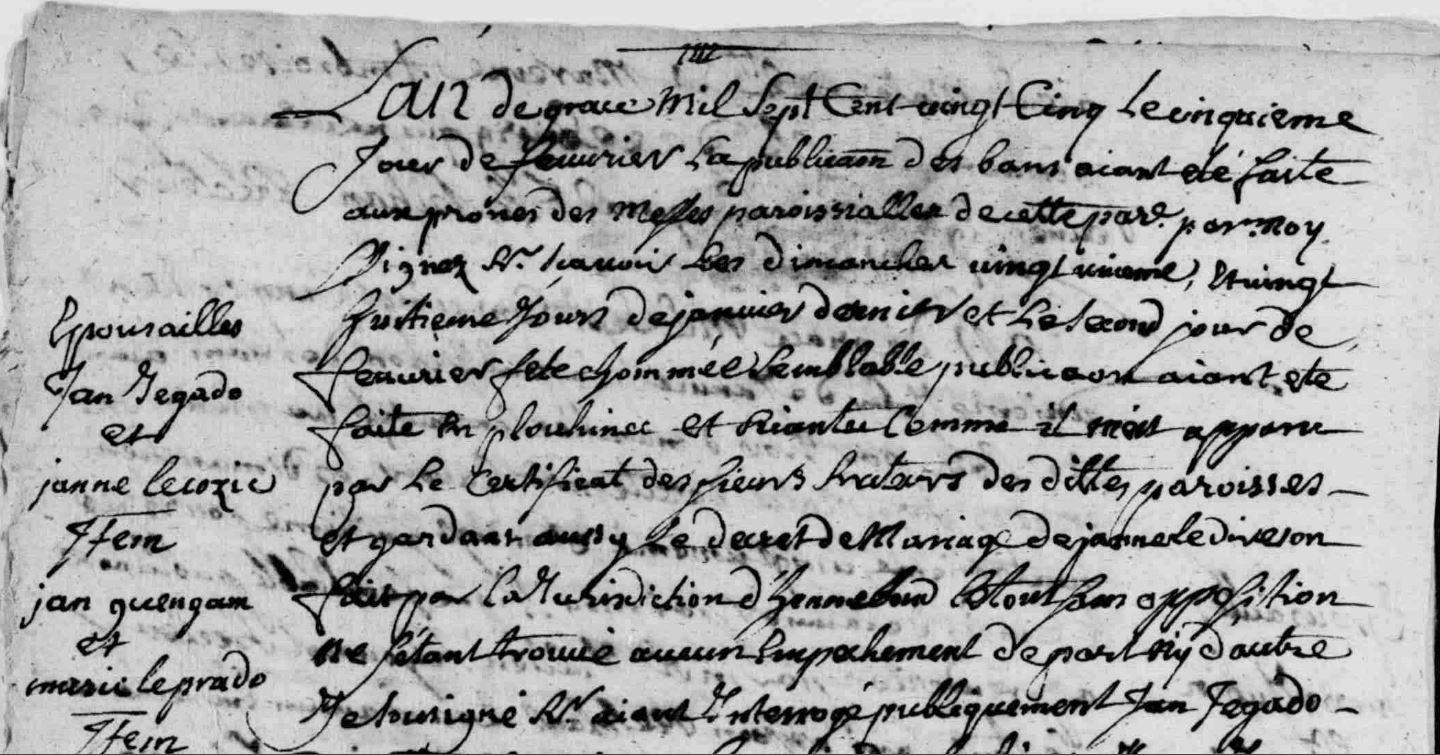 Lan de grace mil sept cent vingt cinq le cinquieme
jour de fevvrier la publicaon des bans aiant eté faite
aux prones des messes paroissialles de cette par. par moy
signez Rr. scavoir les dimanches vingt unieme, et vingt
huitieme jours de janvier dernier et le second jour de
fevvrier fete chommée semblable publicaon aiant eté
faite en plouhinec et riantec comme il m'est apparu
par le certificat des sieurs curateurs des dittes paroisses
et gardant aussy le decret de mariage de janne le diveson
fait par la jurisdiction d'hennebond le tout sans opposition
ne s'étant trouvé aucun empechement de part ny d'autre
je sousigné Rr. aiant interrogé publiquement jan jegado
Epousailles
jan jegado
et
janne lecozic
Item
jan guengam
et
marie le prado
Item